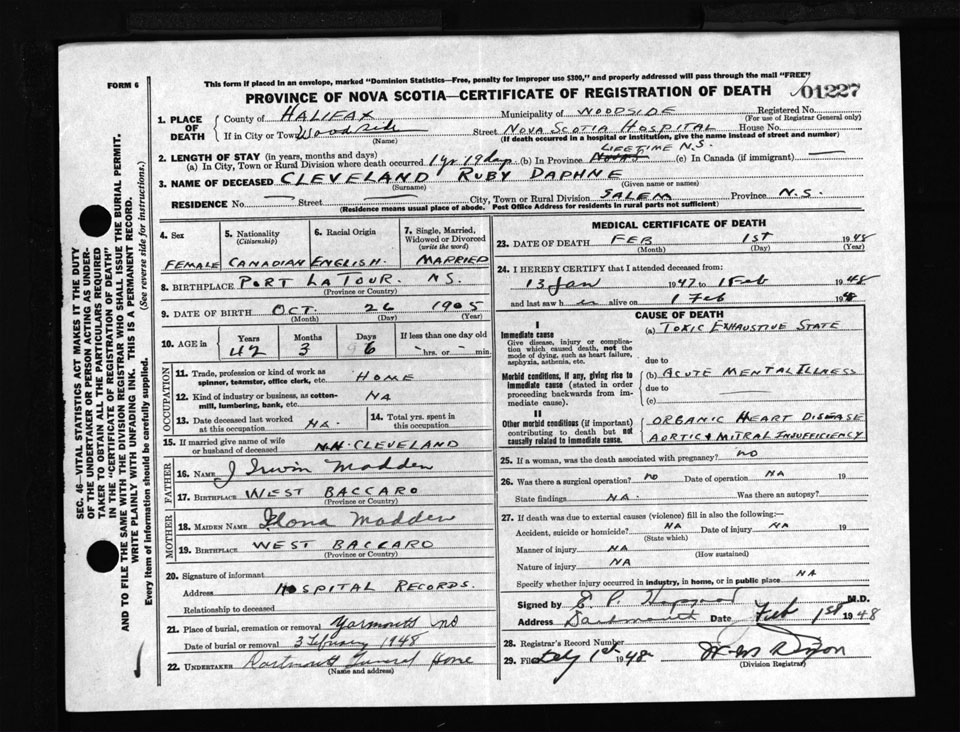 FORM 6
This form if placed in an envelope, marked "Dominion Statistics—Free, penalty for improper use $300," and properly addressed will pass through the mail "FREE"
PROVINCE OF NOVA SCOTIA—CERTIFICATE OF REGISTRATION OF DEATH
01227
1. PLACE OF DEATH
County of HALIFAX Municipality of WOODSIDE Registered No.
(For use of Registrar General only)
If in City or Town Woodside Street NOVA SCOTIA HOSPITAL House No.
(Name) (If death occurred in a hospital or institution, give the name instead of street and number)
2. LENGTH OF STAY (in years, months and days) LIFETIME N.S.
(a) In City, Town or Rural Division where death occurred 1 yr 19 days (b) In Province (c) In Canada (if immigrant) —
3. NAME OF DECEASED CLEVELAND RUBY DAPHNE
(Surname) (Given name or names)
RESIDENCE No. — Street — City, Town or Rural Division SALEM Province N.S.
(Residence means usual place of abode. Post Office Address for residents in rural parts not sufficient)
4. Sex
FEMALE
5. Nationality
(Citizenship)
CANADIAN
6. Racial Origin
ENGLISH.
7. Single, Married, Widowed or Divorced
(write the word)
MARRIED
8. BIRTHPLACE PORT LA TOUR. NS.
(Province or Country)
9. DATE OF BIRTH OCT. 26 1905
(Month) (Day) (Year)
10. AGE in
Years Months Days If less than one day old
42 3 6 hrs. or min.
OCCUPATION
11. Trade, profession or kind of work as spinner, teamster, office clerk, etc. HOME
12. Kind of industry or business, as cotton-mill, lumbering, bank, etc. NA
13. Date deceased last worked at this occupation NA.
14. Total yrs. spent in this occupation
15. If married give name of wife or husband of deceased N.H. CLEVELAND
FATHER
16. NAME J Irwin Madden
17. BIRTHPLACE WEST BACCARO
(Province or Country)
MOTHER
18. MAIDEN NAME Madden
19. BIRTHPLACE WEST BACCARO
(Province or Country)
20. Signature of informant
Address HOSPITAL RECORDS.
Relationship to deceased
21. Place of burial, cremation or removal Yarmouth NS
Date of burial or removal 3 February 1948
22. UNDERTAKER Dartmouth Funeral Home
(Name and address)
MEDICAL CERTIFICATE OF DEATH
23. DATE OF DEATH FEB 1st 1948
(Month) (Day) (Year)
24. I HEREBY CERTIFY that I attended deceased from:
13 Jan 1947 to 1 Feb 1948
and last saw h er alive on 1 Feb 1948
CAUSE OF DEATH
I
Immediate cause
Give disease, injury or complication which caused death, not the mode of dying, such as heart failure, asphyxia, asthenia, etc.
(a) TOXIC EXHAUSTIVE STATE
due to
Morbid conditions, if any, giving rise to immediate cause (stated in order proceeding backwards from immediate cause).
(b) ACUTE MENTAL ILLNESS
due to
(c)
II
Other morbid conditions (if important) contributing to death but not causally related to immediate cause.
ORGANIC HEART DISEASE
AORTIC & MITRAL INSUFFICIENCY
25. If a woman, was the death associated with pregnancy? NO
26. Was there a surgical operation? NO Date of operation NA 19
State findings NA. Was there an autopsy?
27. If death was due to external causes (violence) fill in also the following:—
Accident, suicide or homicide? NA Date of injury NA 19
(State which)
Manner of injury NA
(How sustained)
Nature of injury NA
Specify whether injury occurred in industry, in home, or in public place NA
Signed by E. P. M.D.
Address Dartmouth Date Feb 1st 1948
28. Registrar's Record Number
29. Filed 1st 1948
(Division Registrar)
SEC. 46—VITAL STATISTICS ACT MAKES IT THE DUTY
OF THE UNDERTAKER OR PERSON ACTING AS UNDER-
TAKER TO OBTAIN ALL THE PARTICULARS REQUIRED
IN THE "CERTIFICATE OF REGISTRATION OF DEATH"
AND TO FILE THE SAME WITH THE DIVISION REGISTRAR WHO SHALL ISSUE THE BURIAL PERMIT.
WRITE PLAINLY WITH UNFADING INK. THIS IS A PERMANENT RECORD.
Every item of information should be carefully supplied. (See reverse side for instructions.)